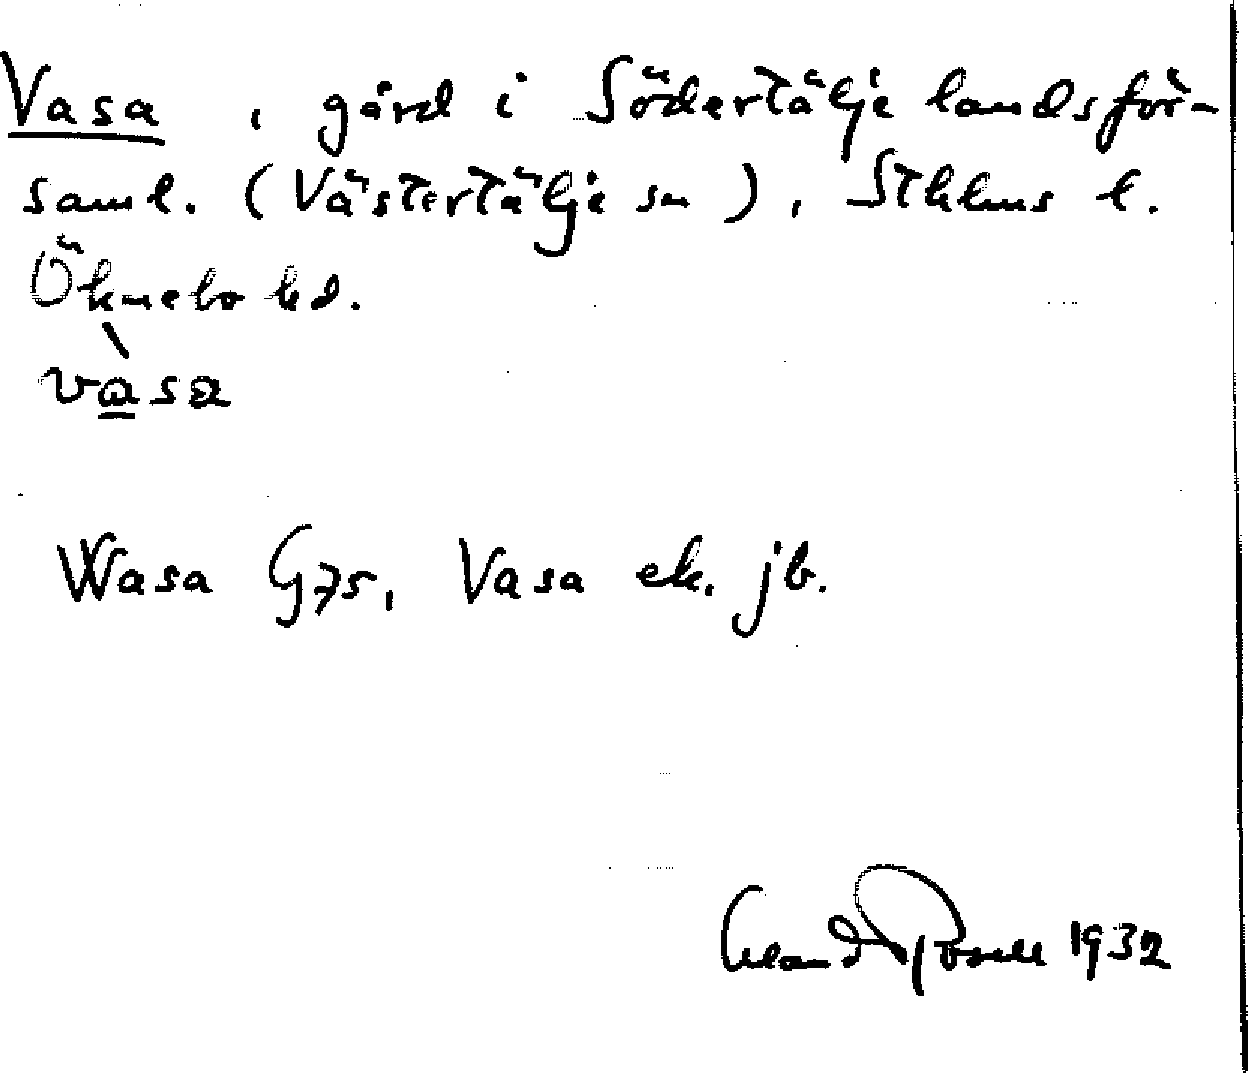 Vasa, gård i Södertälje landsför-
saml. (Västertälje sn), Sthlms l.
Öknebo hd.
vàsa
Wasa G 75, Vasa ek. jb.
1932